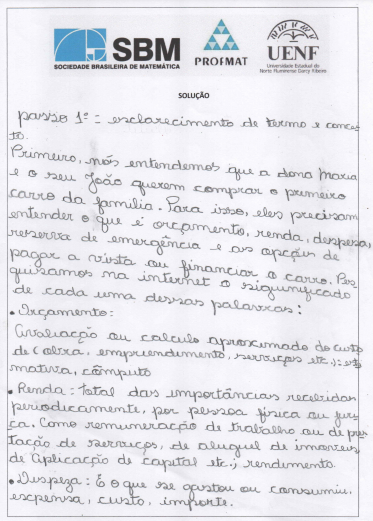 SBM
SOCIEDADE BRASILEIRA DE MATEMÁTICA
PROFMAT
UENF
Universidade Estadual do
Norte Fluminense Darcy Ribeiro
SOLUÇÃO
passo 1º - esclarecimento de termo e concei
to.
Primeiro, nós entendemos que a dona Maria
e o seu João querem comprar o primeiro
carro da família. Para isso, eles precisam
entender o que é orçamento, renda, despesa,
reserva de emergência e as opções de
pagar a vista ou financiar o carro. Pes
quisamos na internet o significado
de cada uma dessas palavras:
• Orçamento:
Avaliação ou calculo aproximado do custo
de (obra, empreendimento, serviços etc.); esti
mativa, cômputo
• Renda: total das importâncias recebidas
periodicamente, por pessoa física ou jurídi
ca. Como remuneração de trabalho ou de pres
tação de serviços, de aluguel de imóveis,
de aplicação de capital etc.; rendimento.
• Despeza: É o que se gastou ou consumiu.
expensa, custo, importe.